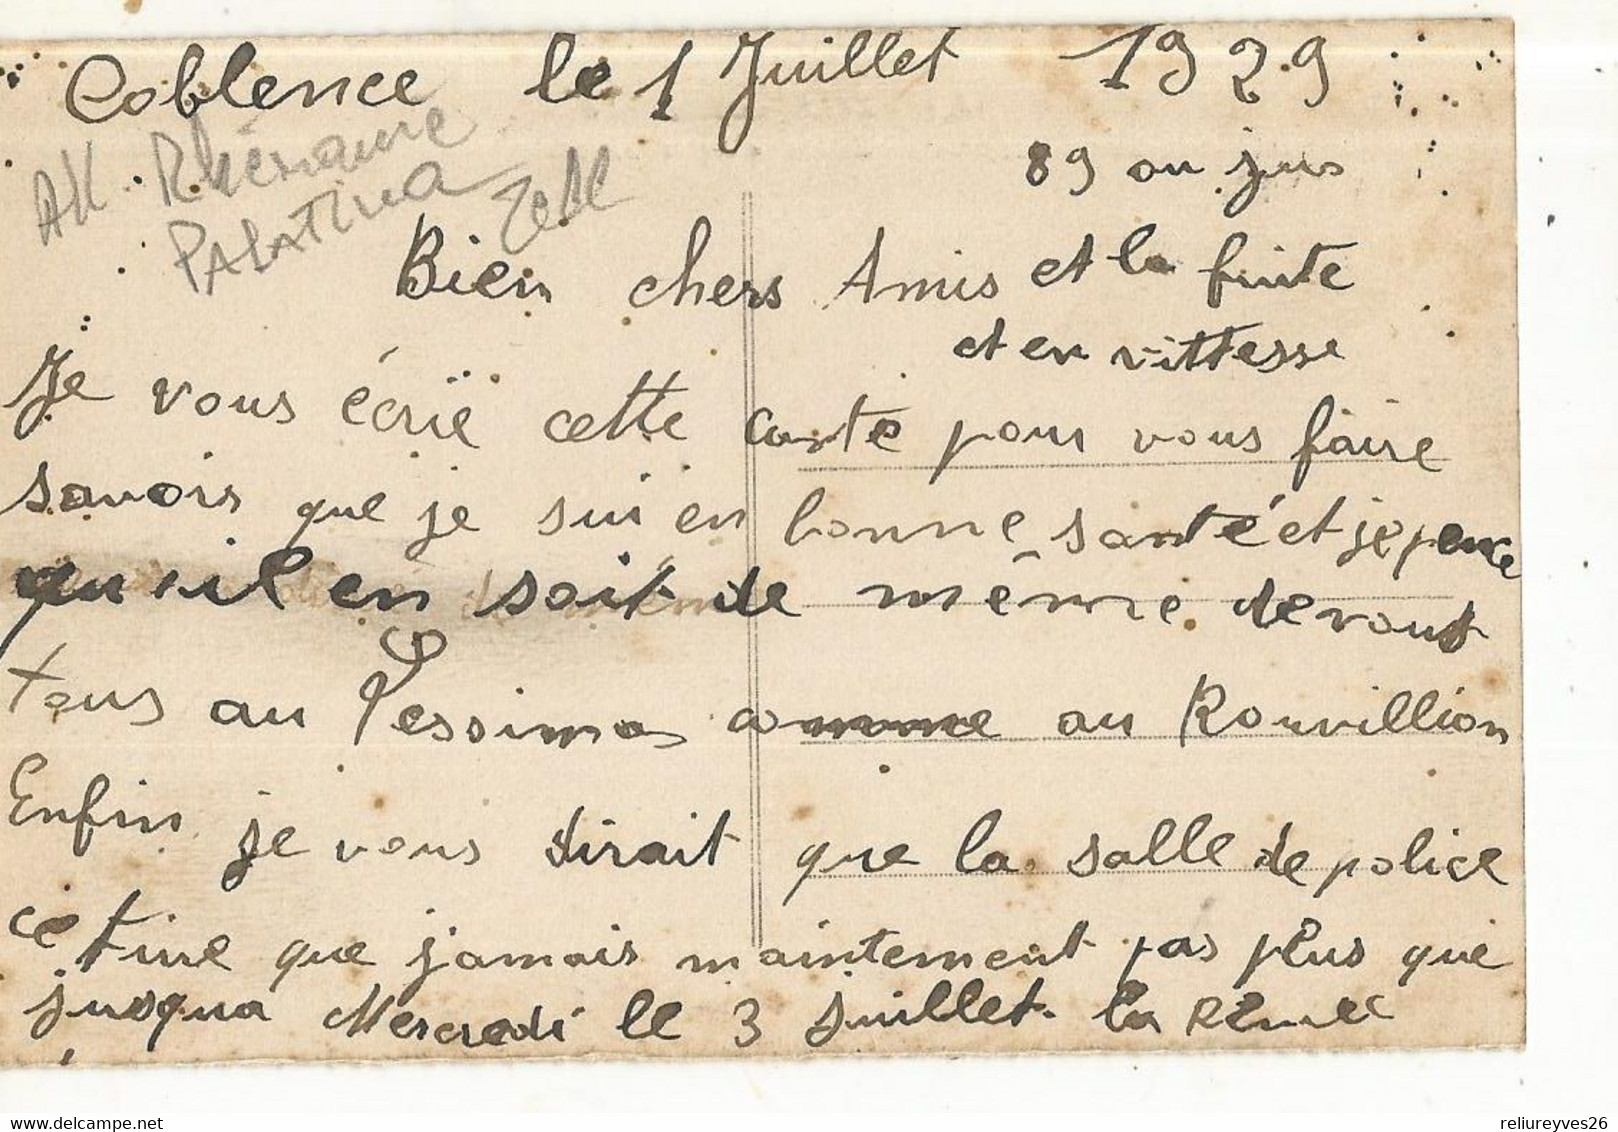 Coblence le 1 Juillet 1929
AK Rhénanie
PALATINA Zell
89 au jus
Bien chers Amis et la fuite
et en vittesse
Je vous écrie cette carte pour vous faire
savoir que je sui en bonne santé et je pence
qu'il en soit de même de vous
tous au Pessimos comme au Rouvillion
Enfin je vous dirait que la salle de police
ce tire que jamais maintement pas plus que
jusqua Mercredi le 3 Juillet. la
reliureyves26